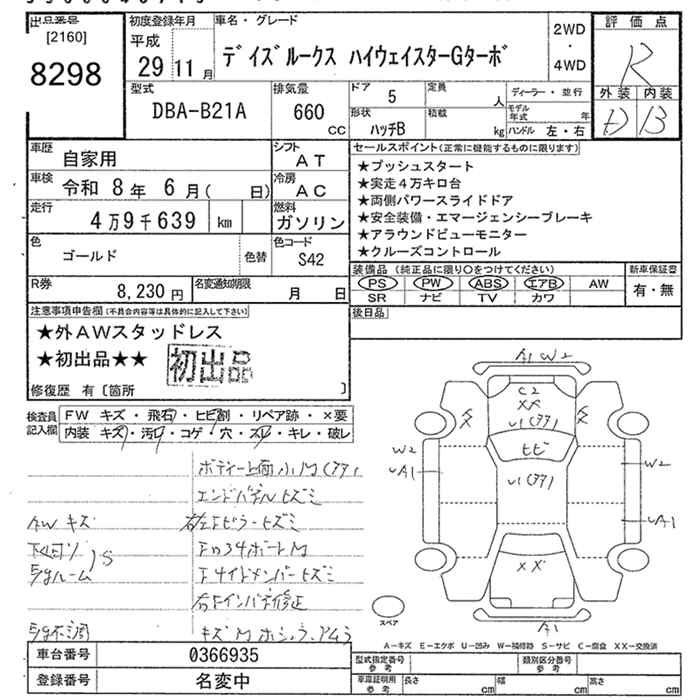 出品番号
[2160]
8298
初度登録年月
平成
29 11 月
車名・グレード
デイズルークス ハイウェイスターGターボ
2WD
・
4WD
評価点
R
外装 内装
D B
型式
DBA-B21A
排気量
660
cc
ドア 5
定員 人
形状 ハッチB
積載 kg
ディーラー・並行
モデル年式 年
ハンドル 左・右
車歴 自家用
シフト AT
車検 令和 8 年 6 月( 日)
冷房 AC
走行 4万9千639 km
燃料 ガソリン
色 ゴールド
色替
色コード S42
R券 8,230 円
名変通知期限 月 日
セールスポイント(正常に機能するものに限ります)
★プッシュスタート
★実走4万キロ台
★両側パワースライドドア
★安全装備・エマージェンシーブレーキ
★アラウンドビューモニター
★クルーズコントロール
装備品 (純正品に限り○をつけてください)
PS PW ABS エアB AW
SR ナビ TV カワ
新車保証書
有・無
後日品
注意事項申告欄(不具合内容等は具体的に記入して下さい)
★外AWスタッドレス
★初出品★★ 初出品
修復歴 有〔箇所 〕
検査員記入欄
FW キズ・飛石・ヒビ割・リペア跡・×要
内装 キズ・汚れ・コゲ・穴・スレ・キレ・破レ
エンドパネルヒズミ
AW キズ
A1 W2
C2
XX
ヒビ
W2
A1
W2
A1
XX
A1
スペア
A-キズ E-エクボ U-凹み W-補修跡 S-サビ C-腐食 XX-交換済
車台番号 0366935
登録番号 名変中
型式指定番号 参考
類別区分番号 参考
車庫証明用 参考
長さ cm
幅 cm
高さ cm